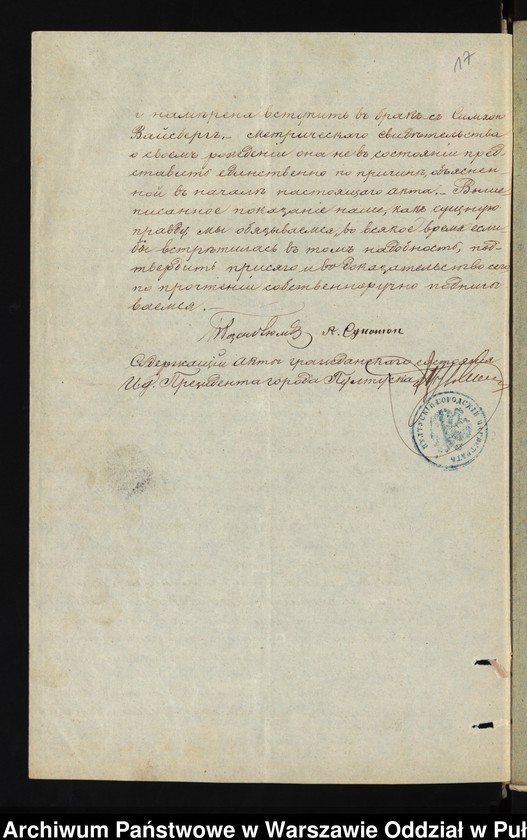 17
и намѣрена вступить въ бракъ съ Симхою
Вайсбергъ. - Метрическаго свидѣтельства
о своемъ рожденіи она не въ состояніи пред
ставить единственно по причинѣ, объяснен-
ной въ началѣ настоящаго акта. - Выше
писанное показаніе наше, какъ сущную
правду, мы обязываемся, во всякое время если
бы встрѣтилась въ томъ надобность, под-
твердить присягою и въ доказательство сего
по прочтеніи собственноручно подписы
ваемся.
Содержащій акты гражданскаго состоянія
И.д. Президента города Пултуска
ПУЛТУСКІЙ ГОРОДСКІЙ МАГИСТРАТЪ
Archiwum Państwowe w Warszawie Oddział w Puł